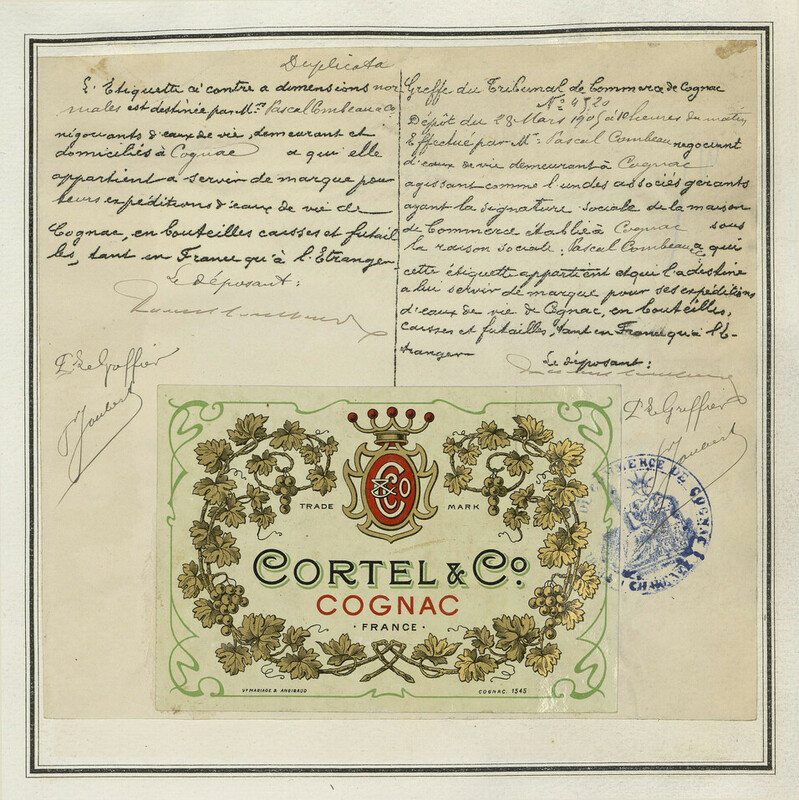 Duplicata
L'Etiquette ci contre a dimensions nor
males est destinée par Mr. Pascal Combeau & Co
négociants d'eaux de vie, demeurant et
domiciliés à Cognac a qui elle
appartient a servir de marque pour
leurs expéditions d'eaux de vie de
Cognac, en bouteilles caisses et futail
les, tant en France qu'à l'Etranger
Le déposant:
Pr Le Greffier
Joubert
Greffe du Tribunal de Commerce de Cognac
No 4520
Dépôt du 28 Mars 1905 à 10 heures du matin
Effectué par Mr. Pascal Combeau négociant
d'eaux de vie demeurant à Cognac
agissant comme l'un des associés gérants
ayant la signature sociale de la maison
de Commerce établie à Cognac sous
la raison sociale: Pascal Combeau & Co a qui
cette étiquette appartient et qui l'a destine
a lui servir de marque pour ses expéditions
d'eaux de vie de Cognac, en bouteilles,
caisses et futailles, tant en France qu'à l'E-
tranger
Le déposant:
Pr Le Greffier
Joubert
C & Co
TRADE MARK
CORTEL & Co
COGNAC
· FRANCE ·
Vve MARIAGE & ANGIBAUD
COGNAC. 1545
COMMERCE DE COGNAC
CHARENTE